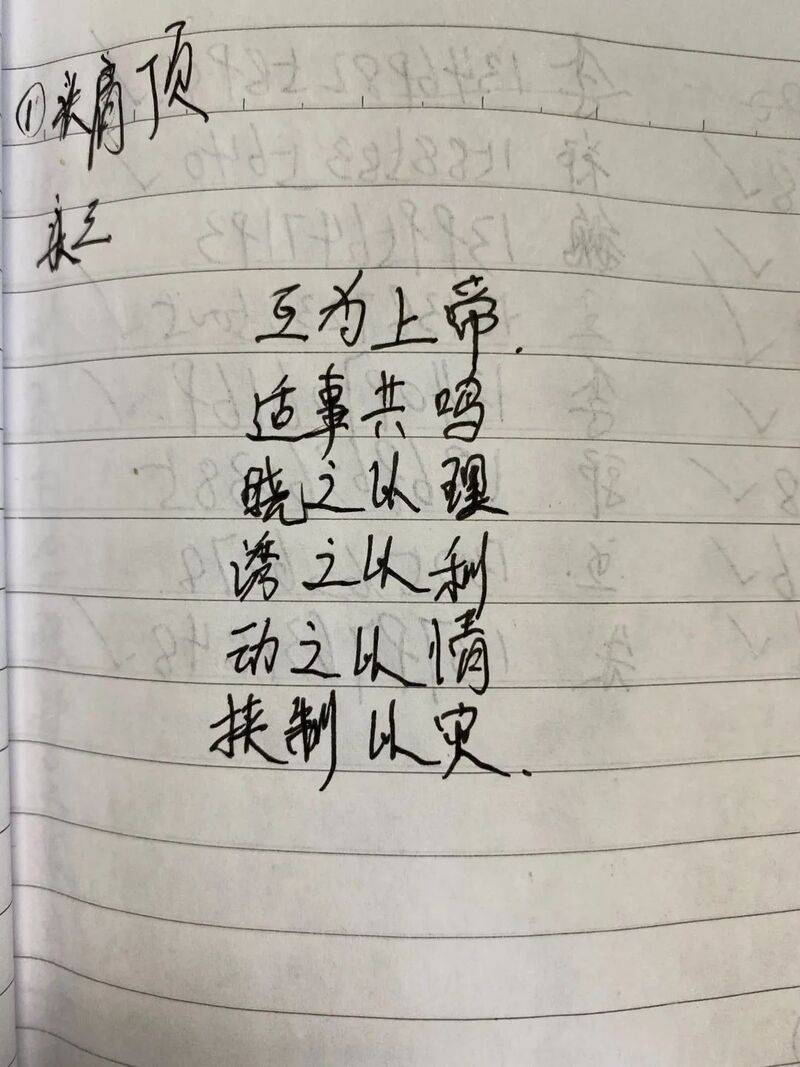 ①头肩顶
头三
互为上帝.
适事共鸣
晓之以理
诱之以利
动之以情
挟制以灾.